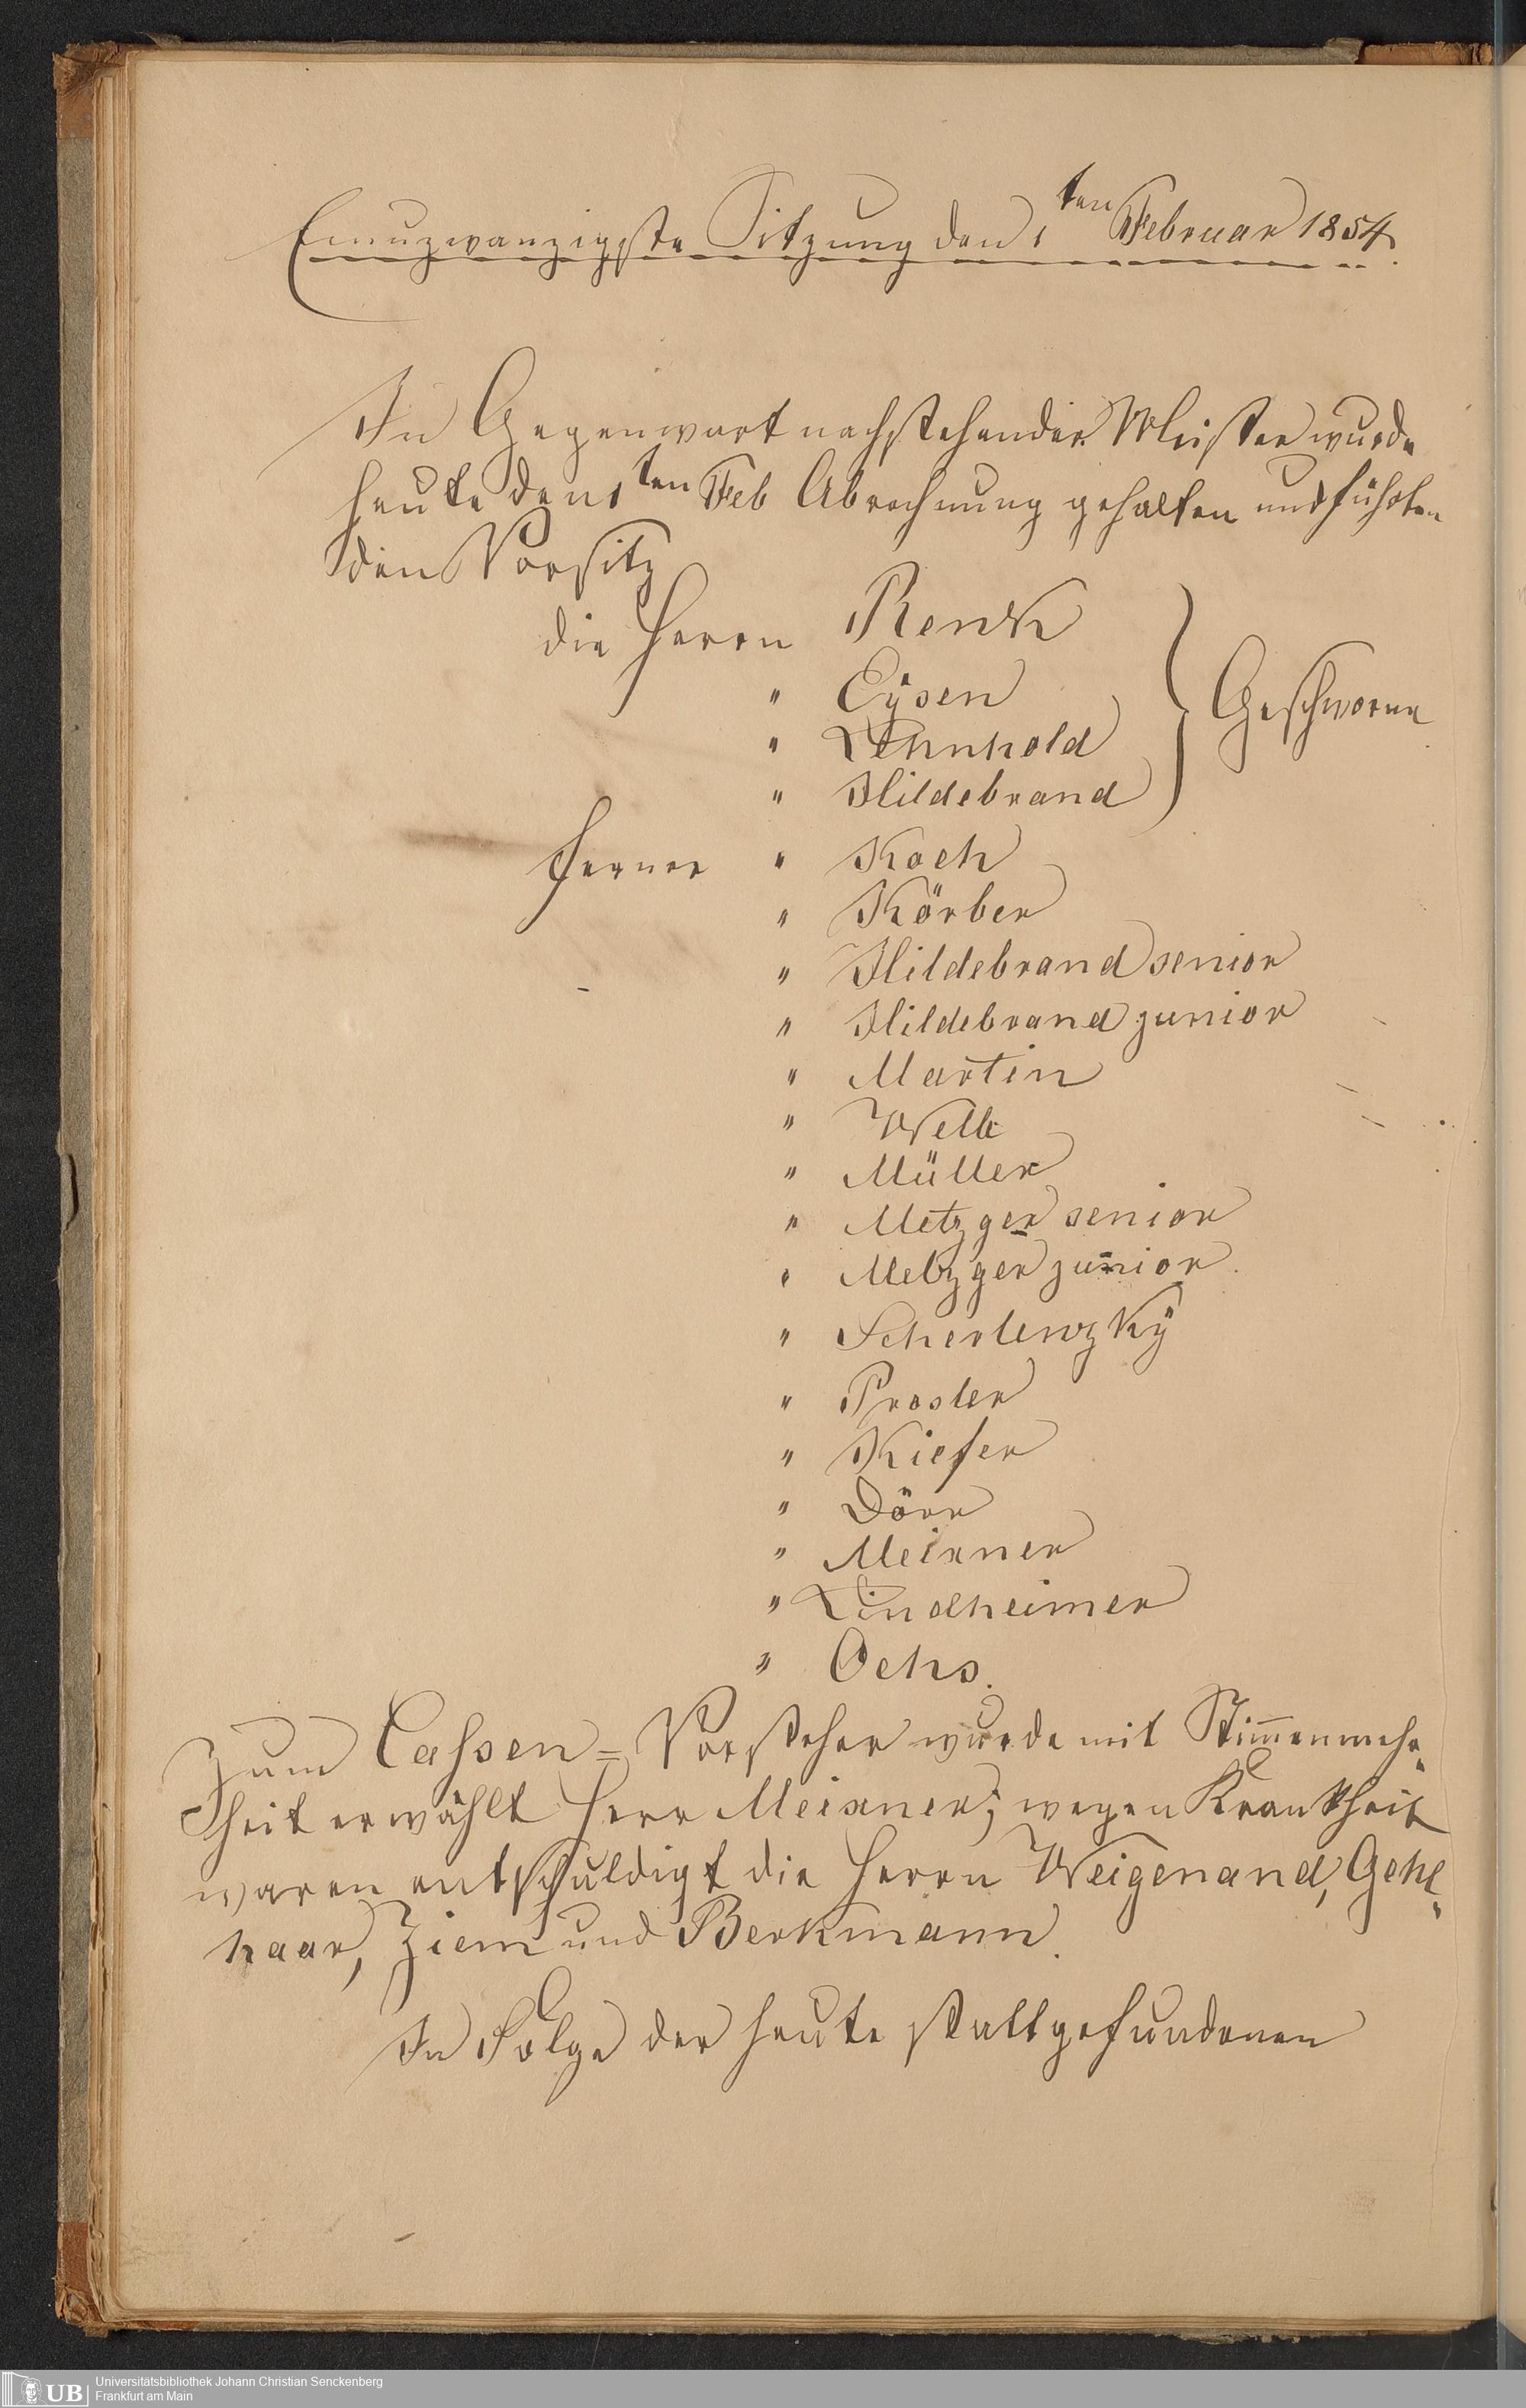 Einuzwanzigste Sitzung den 1ten Februar 1854.
In Gegenwart nachstehender Meister wurde
heute den 1ten Feb Abrechnung gehalten und führten
den Vorsitz
die Herrn Renk
" Eÿsen
" Lehnhold
" Hildebrand
} Geschworne
ferner " Koch
" Körber
" Hildebrand senior
" Hildebrand junior
" Martin
" Welb
" Müller
" Metzger senior
" Metzger junior.
" Scherlenzkÿ
" Prosler
" Kiefer
" Dörr
" Meixner
" Lindheimer
" Ochs.
Zum Cassen-Vorsteher wurde mit Stim̅enmehr-
heit erwählt Herr Meixner; wegen Krankheit
waren entschuldigt die Herrn Weigenand, Gehl-
haar, Ziem und Berkmann.
In Folge der heute stattgefundenen
UB Universitätsbibliothek Johann Christian Senckenberg
Frankfurt am Main